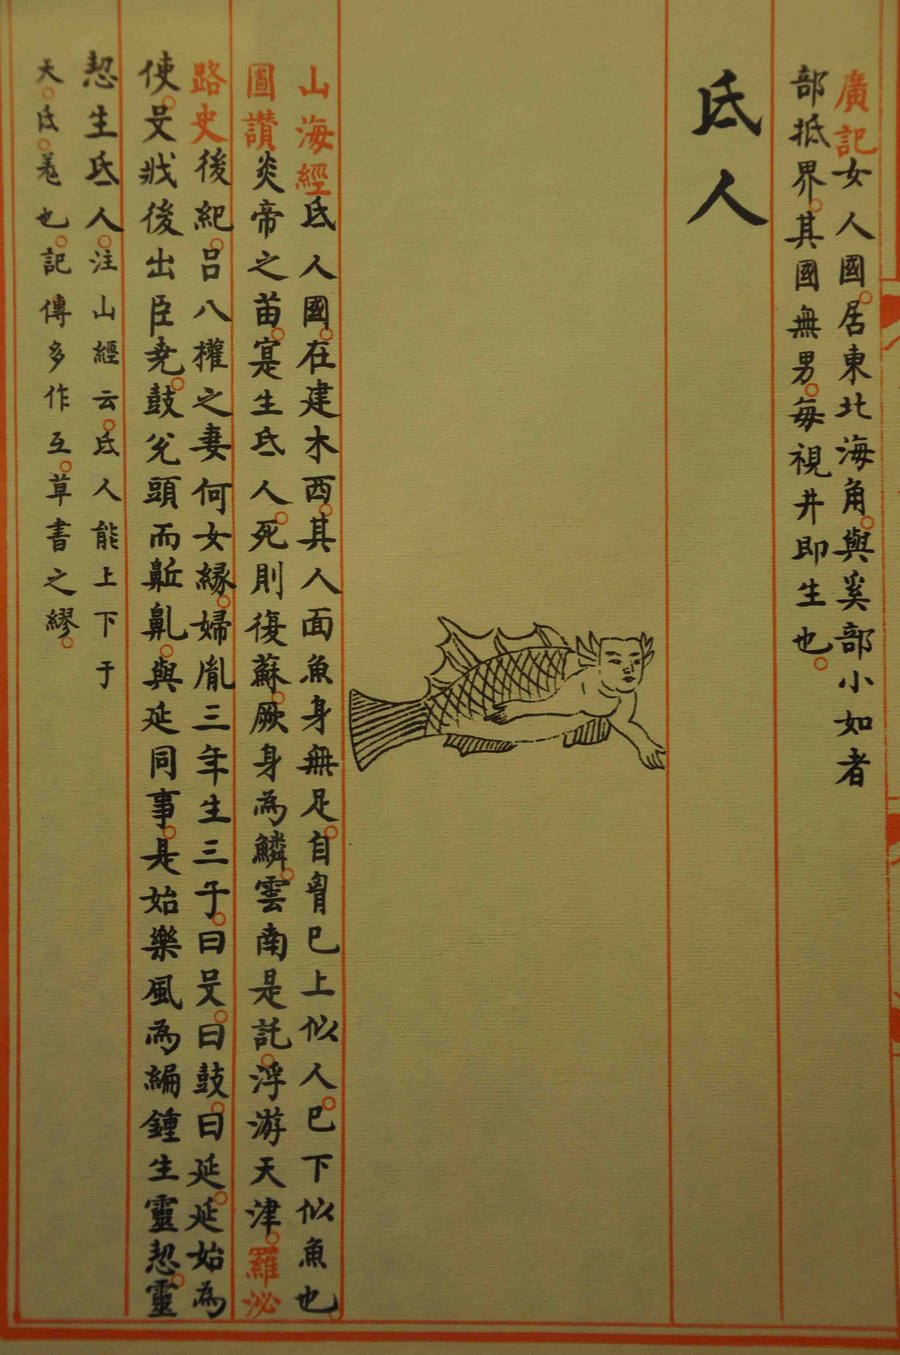 廣記女人國。居東北海角。與奚部小如者
部抵界。其國無男。每視井即生也。
氐人
山海經氐人國。在建木西。其人面魚身無足。自胷巳上似人。巳下似魚也。
圖讚炎帝之苗。寔生氐人。死則復蘇。厥身為鱗。雲南是託。浮游天津。羅泌
路史後紀。呂八權之妻何女緣。婦胤三年生三子。曰殳。曰鼓。曰延。延始為
使。殳戕後出臣堯。鼓兊頭而鼽。與延同事。是始樂風為編鍾生靈恝。靈
恝生氐人。注山經云。氐人能上下于
天。氐。羗也。記傳多作互。草書之繆。